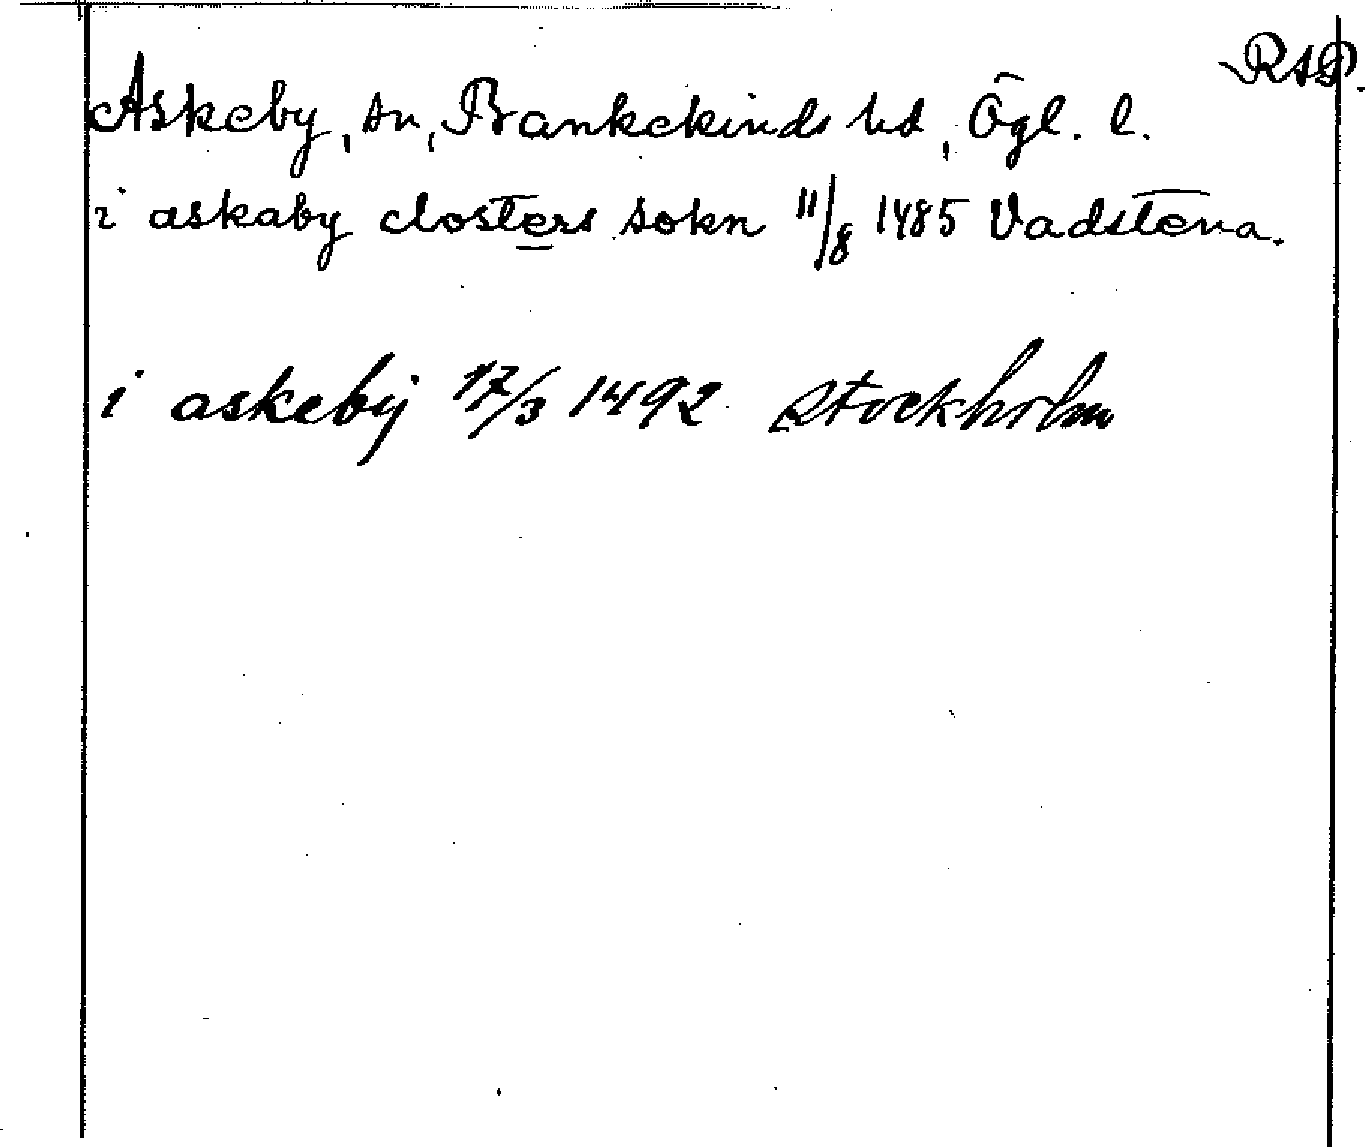 RAP.
Askeby, sn, Bankekinds hd, Ögl. l.
i askaby closters sokn 11/8 1485 Vadstena.
i askeby 17/3 1492 Stockholm